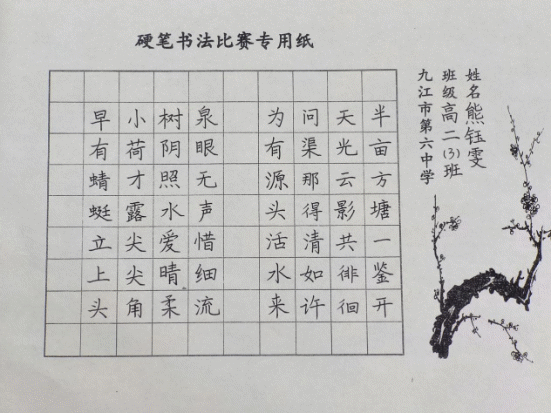 硬笔书法比赛专用纸
姓名熊钰雯
班级高二(3)班
九江市第六中学
半亩方塘一鉴开
天光云影共徘徊
问渠那得清如许
为有源头活水来
泉眼无声惜细流
树阴照水爱晴柔
小荷才露尖尖角
早有蜻蜓立上头